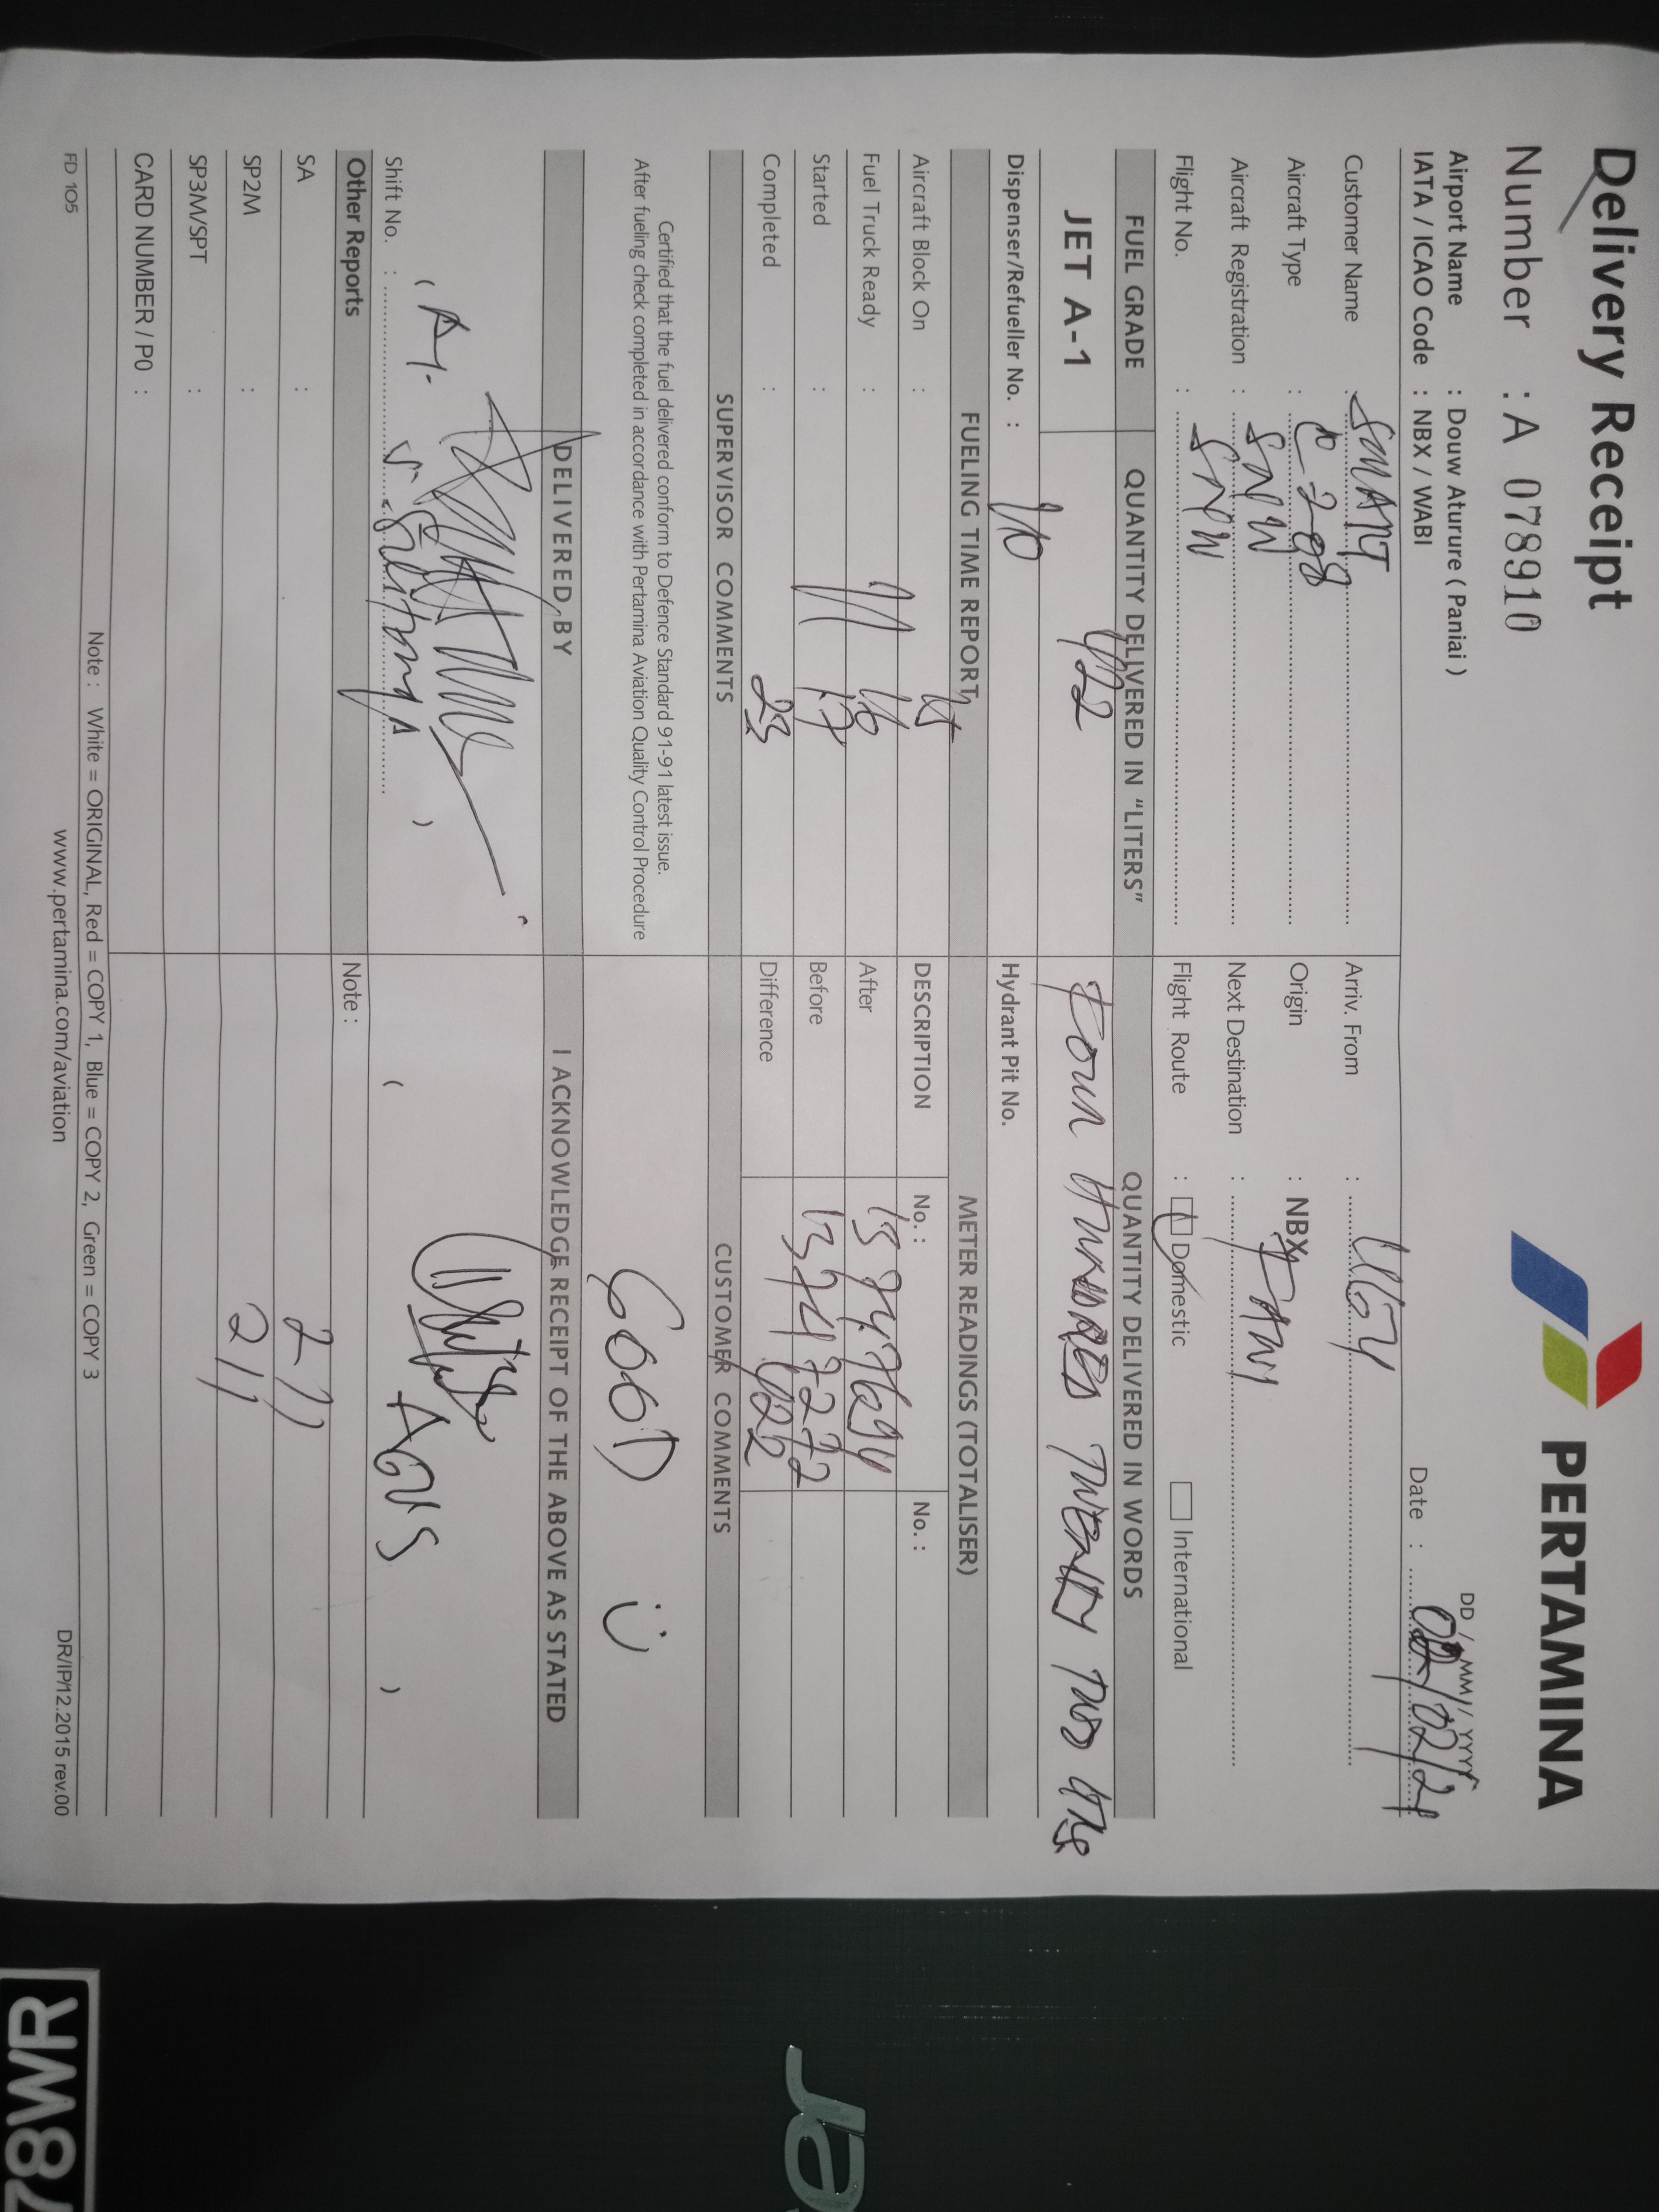 Delivery Receipt
PERTAMINA
Number : A 078910
DD / MM / YYYY
Airport Name : Douw Aturure ( Paniai )
IATA / ICAO Code : NBX / WABI
Date :
Customer Name : SMART
Arriv. From :
Aircraft Type : C 208
Origin : NBX
Aircraft Registration : SNW
Next Destination :
Flight No. : SNW
Flight Route : Domestic International
FUEL GRADE QUANTITY DELIVERED IN "LITERS" QUANTITY DELIVERED IN WORDS
JET A-1 422 Four HUNDRED TWENTY TWO
Dispenser/Refueller No. : 10 Hydrant Pit No.
FUELING TIME REPORT METER READINGS (TOTALISER)
Aircraft Block On : 15 DESCRIPTION No. : No. :
Fuel Truck Ready : 16 After 13747694
Started : 17 Before 13747272
Completed : 23 Difference 422
SUPERVISOR COMMENTS CUSTOMER COMMENTS
Certified that the fuel delivered conform to Defence Standard 91-91 latest issue.
After fueling check completed in accordance with Pertamina Aviation Quality Control Procedure
GOOD
DELIVERED BY I ACKNOWLEDGE RECEIPT OF THE ABOVE AS STATED
AGUS
Shift No. :
Other Reports Note :
SA : 211
SP2M : 211
SP3M/SPT :
CARD NUMBER / PO :
Note : White = ORIGINAL, Red = COPY 1, Blue = COPY 2, Green = COPY 3
FD 105 www.pertamina.com/aviation DR/IP/12.2015 rev.00
78WR